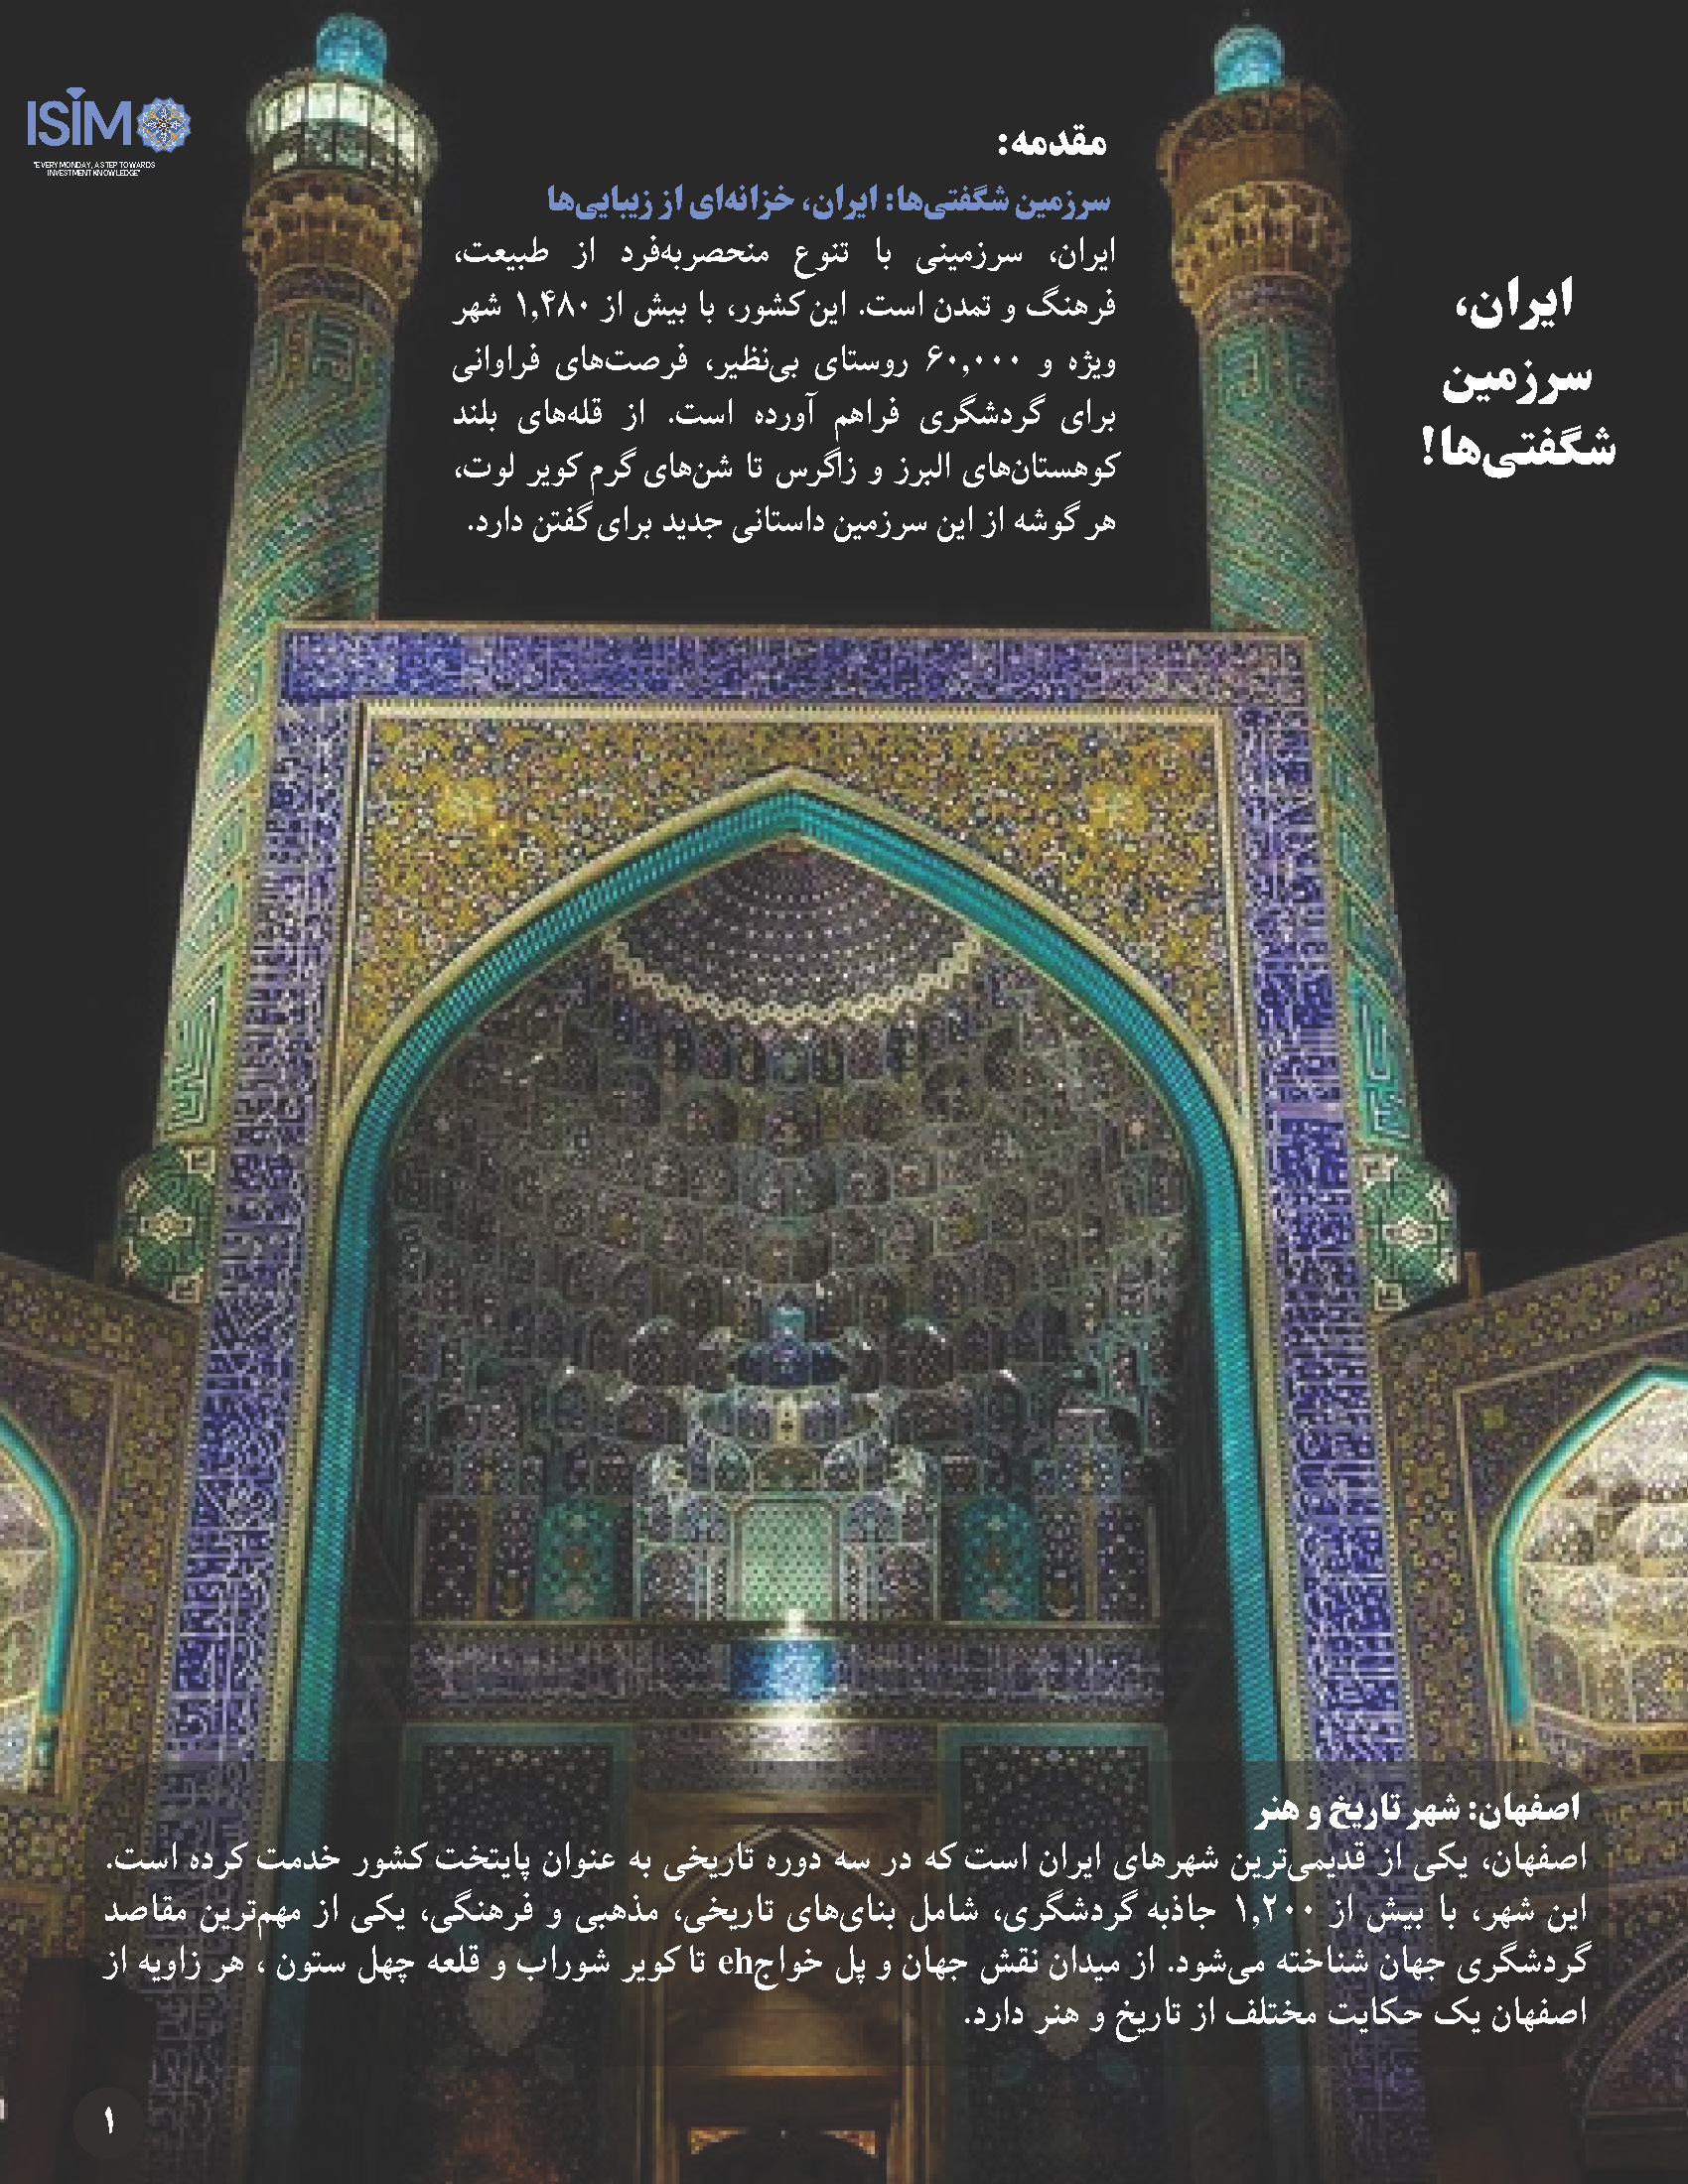 ISIM
"EVERY MONDAY, A STEP TOWARDS
INVESTMENT KNOWLEDGE"
ایران،
سرزمین
شگفتی‌ها!
مقدمه:
سرزمین شگفتی‌ها: ایران، خزانه‌ای از زیبایی‌ها
ایران، سرزمینی با تنوع منحصربه‌فرد از طبیعت،
فرهنگ و تمدن است. این کشور، با بیش از ۱,۴۸۰ شهر
ویژه و ۶۰,۰۰۰ روستای بی‌نظیر، فرصت‌های فراوانی
برای گردشگری فراهم آورده است. از قله‌های بلند
کوهستان‌های البرز و زاگرس تا شن‌های گرم کویر لوت،
هر گوشه از این سرزمین داستانی جدید برای گفتن دارد.
اصفهان: شهر تاریخ و هنر
اصفهان، یکی از قدیمی‌ترین شهرهای ایران است که در سه دوره تاریخی به عنوان پایتخت کشور خدمت کرده است.
این شهر، با بیش از ۱,۲۰۰ جاذبه گردشگری، شامل بنای‌های تاریخی، مذهبی و فرهنگی، یکی از مهم‌ترین مقاصد
گردشگری جهان شناخته می‌شود. از میدان نقش جهان و پل خواجeh تا کویر شوراب و قلعه چهل ستون ، هر زاویه از
اصفهان یک حکایت مختلف از تاریخ و هنر دارد.
۱